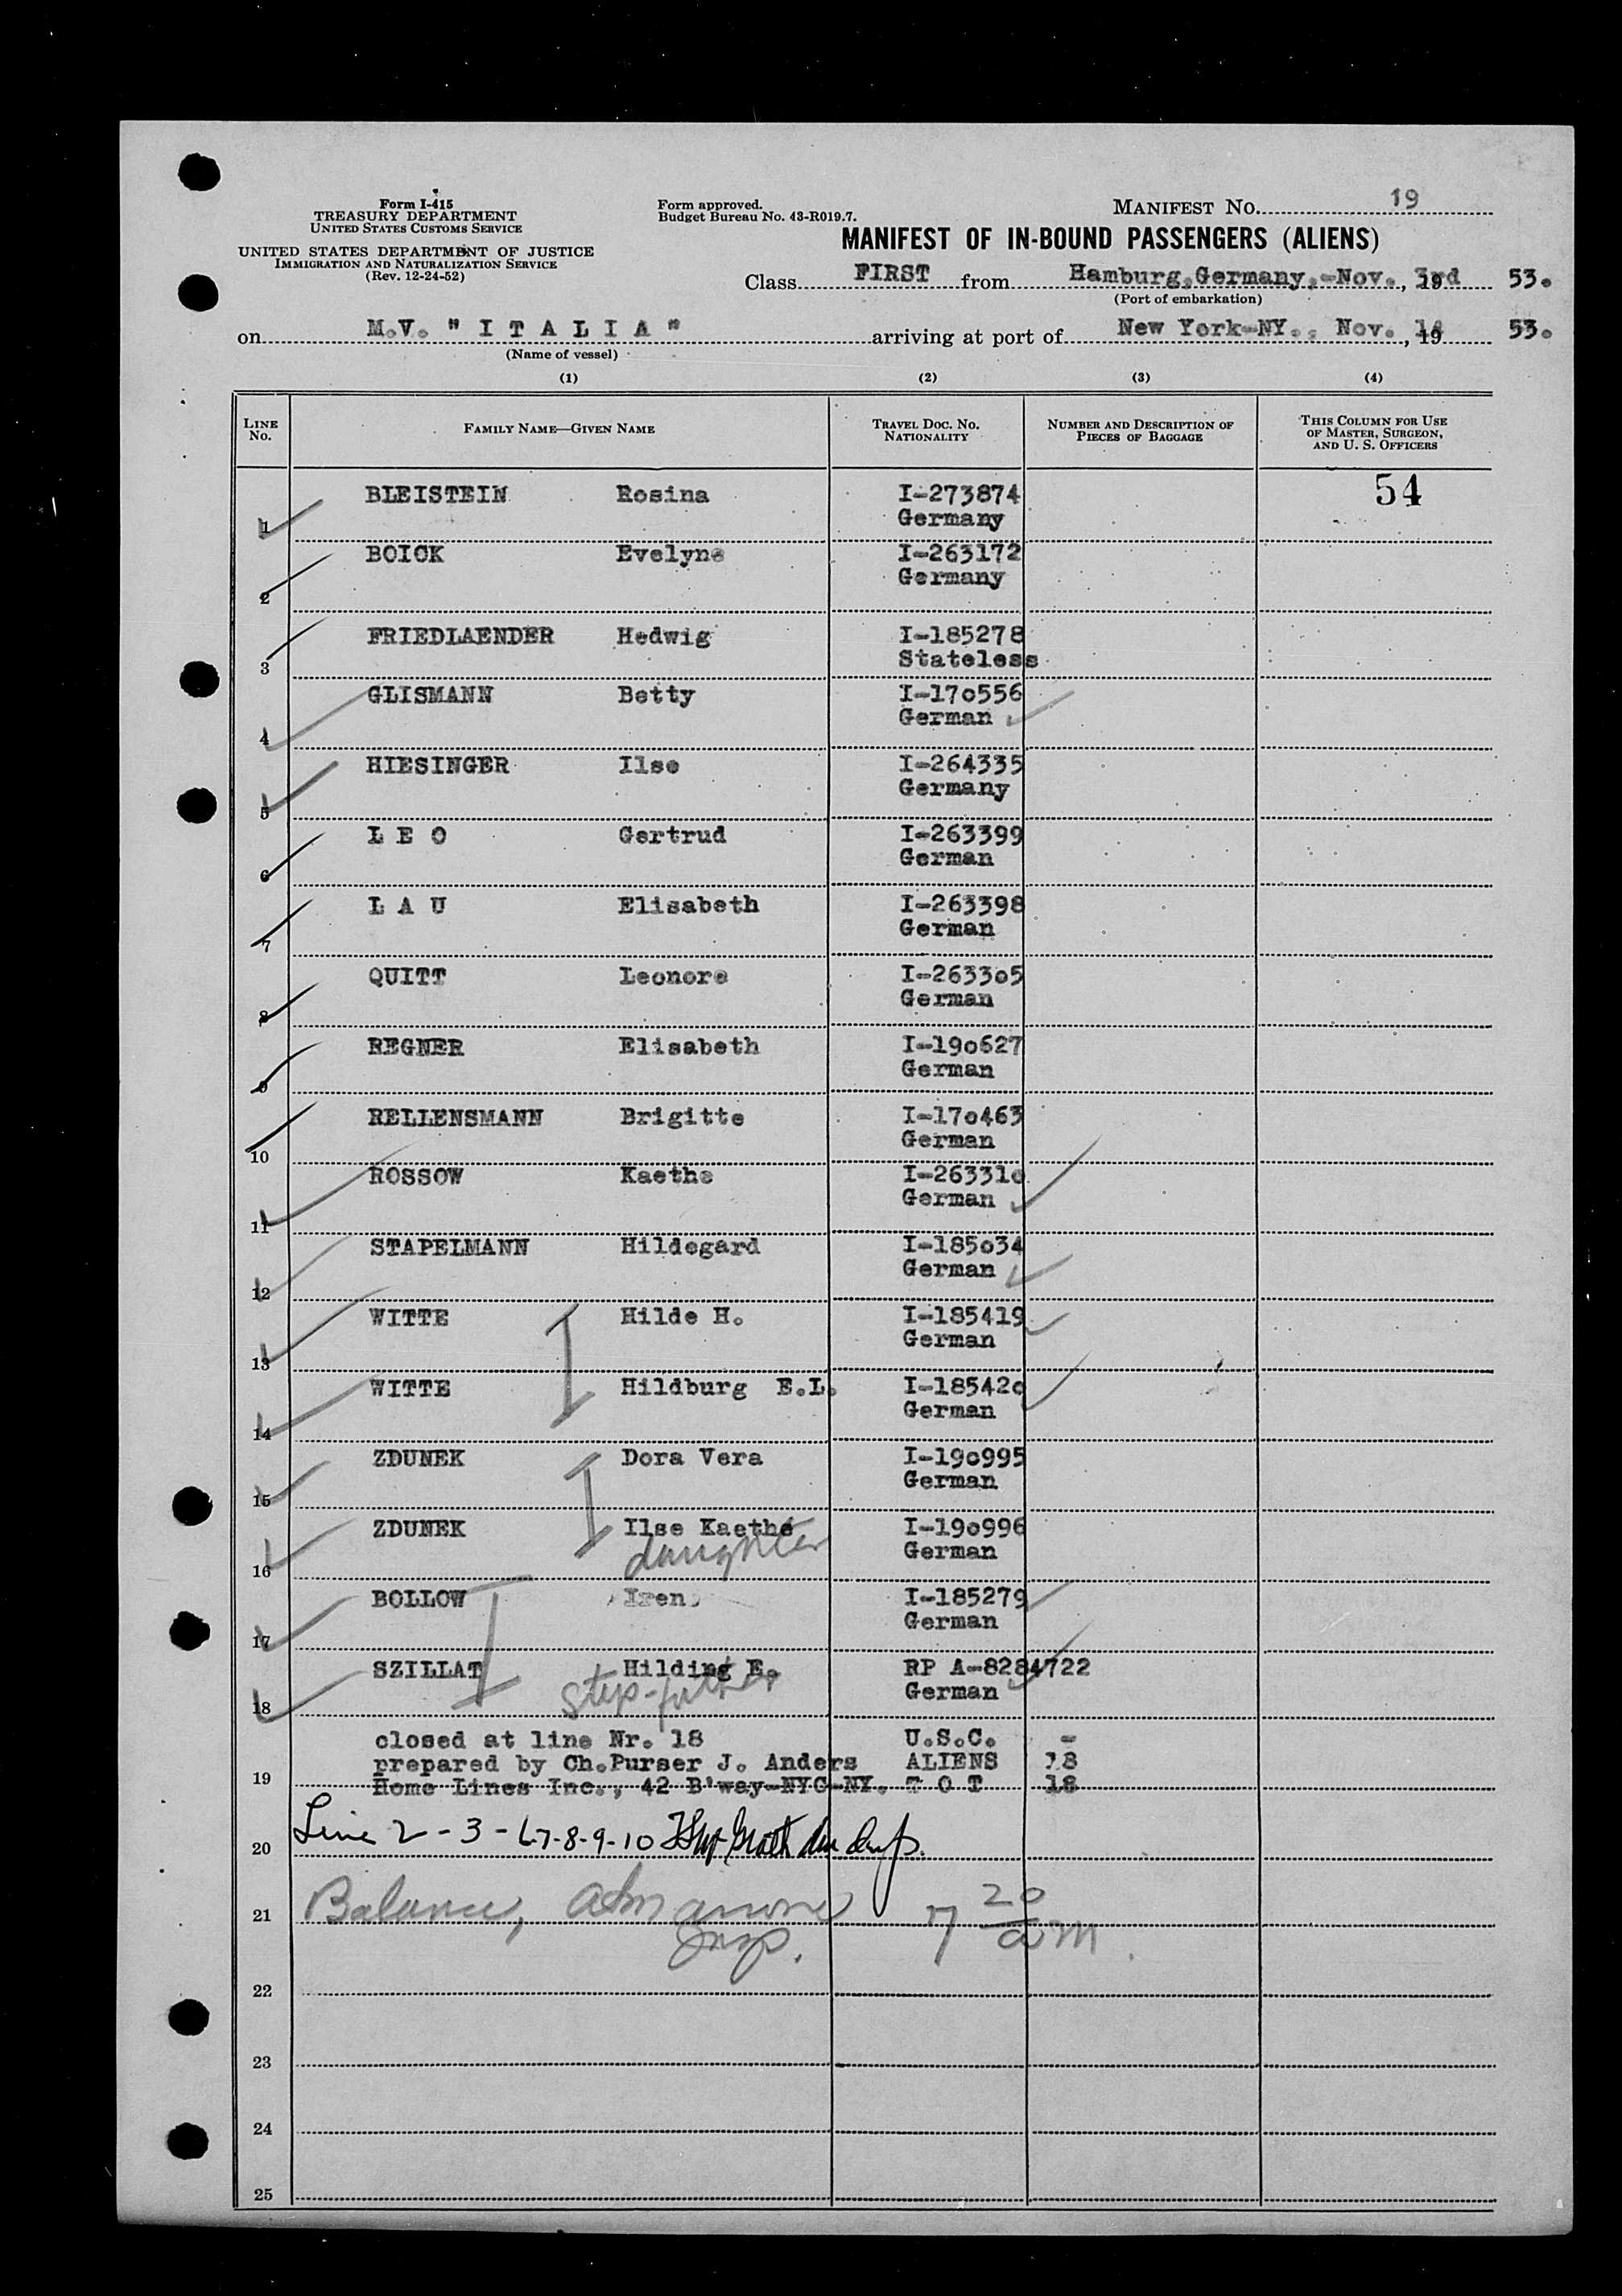 Form I-415
TREASURY DEPARTMENT
UNITED STATES CUSTOMS SERVICE
UNITED STATES DEPARTMENT OF JUSTICE
IMMIGRATION AND NATURALIZATION SERVICE
(Rev. 12-24-52)
Form approved.
Budget Bureau No. 43-R019.7.
MANIFEST NO. 19
MANIFEST OF IN-BOUND PASSENGERS (ALIENS)
Class FIRST from Hamburg,Germany,-Nov. 3rd, 19 53.
(Port of embarkation)
on M.V. "I T A L I A" arriving at port of New York-NY., Nov. 14, 19 53.
(Name of vessel)
(1) (2) (3) (4)
LINE NO. FAMILY NAME—GIVEN NAME TRAVEL DOC. NO. NATIONALITY NUMBER AND DESCRIPTION OF PIECES OF BAGGAGE THIS COLUMN FOR USE OF MASTER, SURGEON, AND U. S. OFFICERS
54
1 BLEISTEIN Rosina I-273874
Germany
2 BOICK Evelyne I-263172
Germany
3 FRIEDLAENDER Hedwig I-185278
Stateless
4 GLISMANN Betty I-170556
German
5 HIESINGER Ilse I-264335
Germany
6 L E O Gertrud I-263399
German
7 L A U Elisabeth I-263398
German
8 QUITT Leonore I-263305
German
9 REGNER Elisabeth I-190627
German
10 RELLENSMANN Brigitte I-170463
German
11 ROSSOW Kaethe I-263310
German
12 STAPELMANN Hildegard I-185034
German
13 WITTE Hilde H. I-185419
German
14 WITTE Hildburg E.L. I-185420
German
15 ZDUNEK Dora Vera I-190995
German
16 ZDUNEK Ilse Kaethe I-190996
daughter German
17 BOLLOW Iren I-185279
German
18 SZILLAT Hilding E. RP A-8284722
step-father German
closed at line Nr. 18 U.S.C. -
prepared by Ch.Purser J. Anders ALIENS 18
19 Home Lines Inc., 42 B'way-NYC-NY. T O T 18
20 Line 2-3-6-7-8-9-10
21 Balance, 7 20 am
Insp.
22
23
24
25